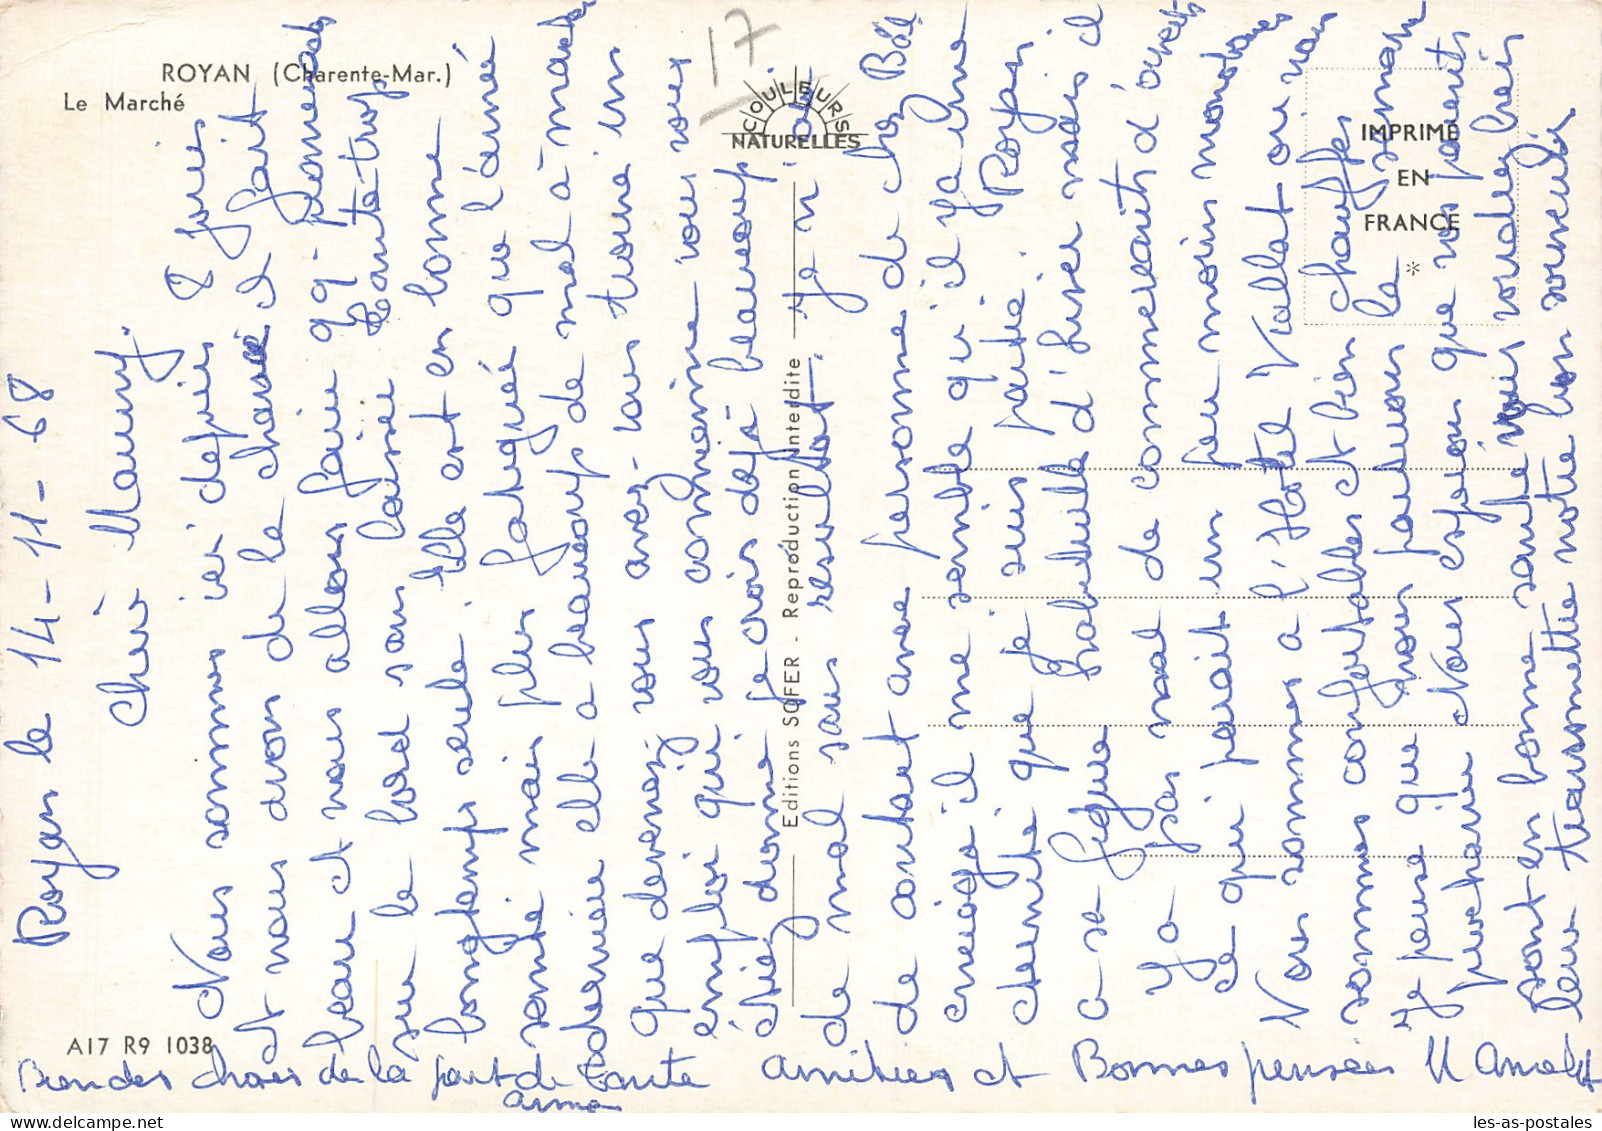 ROYAN (Charente-Mar.)
Le Marché
17
COULEURS
NATURELLES
IMPRIMÉ
EN
FRANCE
*
Editions SOFER - Reproduction Interdite
A17 R9 1038
Royan le 14-11-68
Cher Maury.
Nous sommes ici depuis 8 jours
et nous avons de la chance il fait
beau et nous allons faire qq- promenades
sur le bord sans laisser Tante trop
longtemps seule. Elle est en bonne
santé mais plus fatiguée que l'année
dernière elle a beaucoup de mal à marcher
que devenez vous avez-vous trouvé un
emploi qui vous convienne vous vous
étiez donné je crois déjà beaucoup
de mal sans resultat. Je n'ai
de contact avec personne de chez
il me semble qu'il y a une
que je suis partie. Royan
a sa figure habituelle d'hiver mais il
Ya pas mal de commerçants d'ouverts
ce qui parait un peu moins monotone
Nous sommes à l'Hotel Viallat ou nous
sommes confortables et bien chauffés
Je pense que nous rentrerons la semaine
prochaine Nous espérons que vos parents
sont en bonne santé vous voudrez bien
leur transmettre notre bon souvenir
Bien des choses de la part de Tante
Anna
Amitiés et Bonnes pensées M
les-as-postales